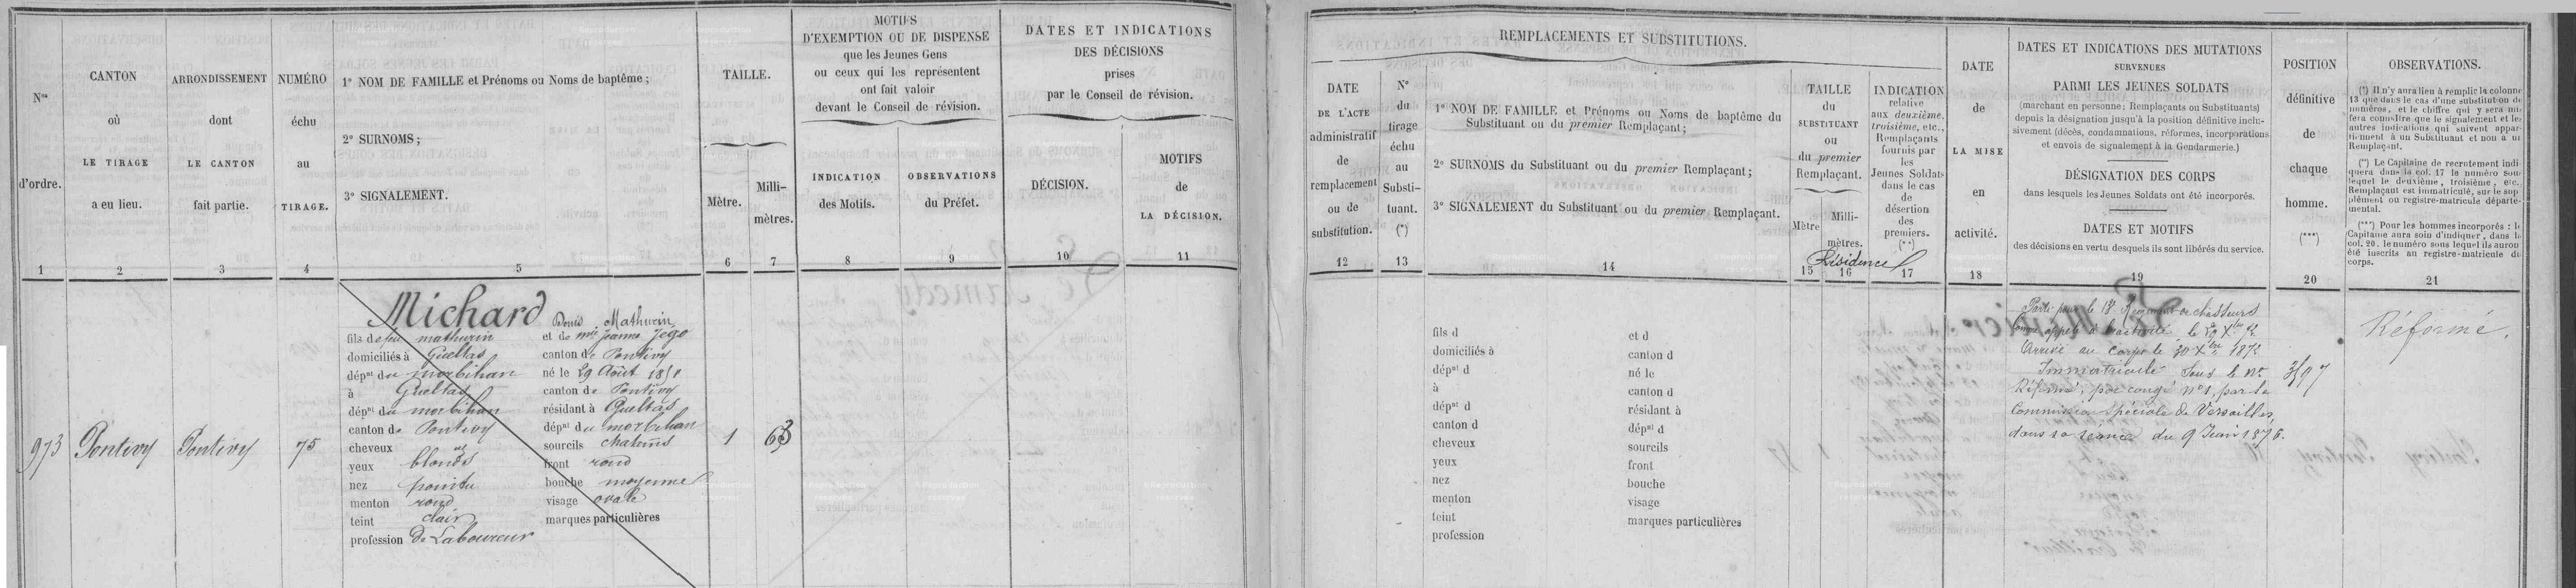 Nos
d'ordre.
1
CANTON
où
LE TIRAGE
a eu lieu.
2
ARRONDISSEMENT
dont
LE CANTON
fait partie.
3
NUMÉRO
échu
au
TIRAGE.
4
1° NOM DE FAMILLE et Prénoms ou Noms de baptême ;
2° SURNOMS ;
3° SIGNALEMENT.
5
TAILLE.
Mètre.
6
Milli-
mètres.
7
MOTIFS
D'EXEMPTION OU DE DISPENSE
que les Jeunes Gens
ou ceux qui les représentent
ont fait valoir
devant le Conseil de révision.
INDICATION
des Motifs.
8
OBSERVATIONS
du Préfet.
9
DATES ET INDICATIONS
DES DÉCISIONS
prises
par le Conseil de révision.
DÉCISION.
10
MOTIFS
de
LA DÉCISION.
11
973
Pontivy
Pontivy
75
Michard Denis Mathurin
fils de feu mathurin et de mie jeanne Jégo
domiciliés à Gueltas canton de Pontivy
dépnt du morbihan né le 29 Août 1851
à Gueltas canton de Pontivy
dépnt du morbihan résidant à Gueltas
canton de Pontivy dépnt du morbihan
cheveux sourcils chatains
yeux blonds front rond
nez pointu bouche moyenne
menton rond visage ovale
teint clair marques particulières
profession de Laboureur
1
63
REMPLACEMENTS ET SUBSTITUTIONS.
DATE
DE L'ACTE
administratif
de
remplacement
ou de
substitution.
12
N°
du
tirage
échu
au
Substi-
tuant.
(*)
13
1° NOM DE FAMILLE et Prénoms ou Noms de baptême du
Substituant ou du premier Remplaçant ;
2° SURNOMS du Substituant ou du premier Remplaçant ;
3° SIGNALEMENT du Substituant ou du premier Remplaçant.
14
TAILLE
du
SUBSTITUANT
ou
du premier
Remplaçant.
Mètre
15
Milli-
mètres.
16
INDICATION
relative
aux deuxième,
troisième, etc.,
Remplaçants
fournis par
les
Jeunes Soldats
dans le cas
de
désertion
des
premiers.
(**)
17
Résidence
DATE
de
LA MISE
en
activité.
18
DATES ET INDICATIONS DES MUTATIONS
SURVENUES
PARMI LES JEUNES SOLDATS
(marchant en personne ; Remplaçants ou Substituants)
depuis la désignation jusqu'à la position définitive inclu-
sivement (décès, condamnations, réformes, incorporations
et envois de signalement à la Gendarmerie.)
DÉSIGNATION DES CORPS
dans lesquels les Jeunes Soldats ont été incorporés.
DATES ET MOTIFS
des décisions en vertu desquels ils sont libérés du service.
19
POSITION
définitive
de
chaque
homme.
(***)
20
OBSERVATIONS.
(*) Il n'y aura lieu à remplir la colonne
13 que dans le cas d'une substitution de
numéros, et le chiffre qui y sera mis
fera connaître que le signalement et les
autres indications qui suivent appar-
tiennent à un Substituant et non à un
Remplaçant.
(**) Le Capitaine de recrutement indi
quera dans la col. 17 le numéro sous
lequel le deuxième, troisième, etc.
Remplaçant est immatriculé, sur le sup
plément ou registre-matricule départe-
mental.
(***) Pour les hommes incorporés : le
Capitaine aura soin d'indiquer, dans la
col. 20, le numéro sous lequel ils auront
été inscrits au registre-matricule du
corps.
21
fils d et d
domiciliés à canton d
dépnt d né le
à canton d
dépnt d résidant à
canton d dépnt d
cheveux sourcils
yeux front
nez bouche
menton visage
teint marques particulières
profession
Parti pour le Régiment de chasseurs
appelé à l'activité le 29 Xbre 72
Arrivé au corps le 30 Xbre 1872
Immatriculé sous le No 3597
Réformé, par congé n° 1, par la
Commission spéciale de Versailles,
dans sa séance du 9 Juin 1876.
Réformé.